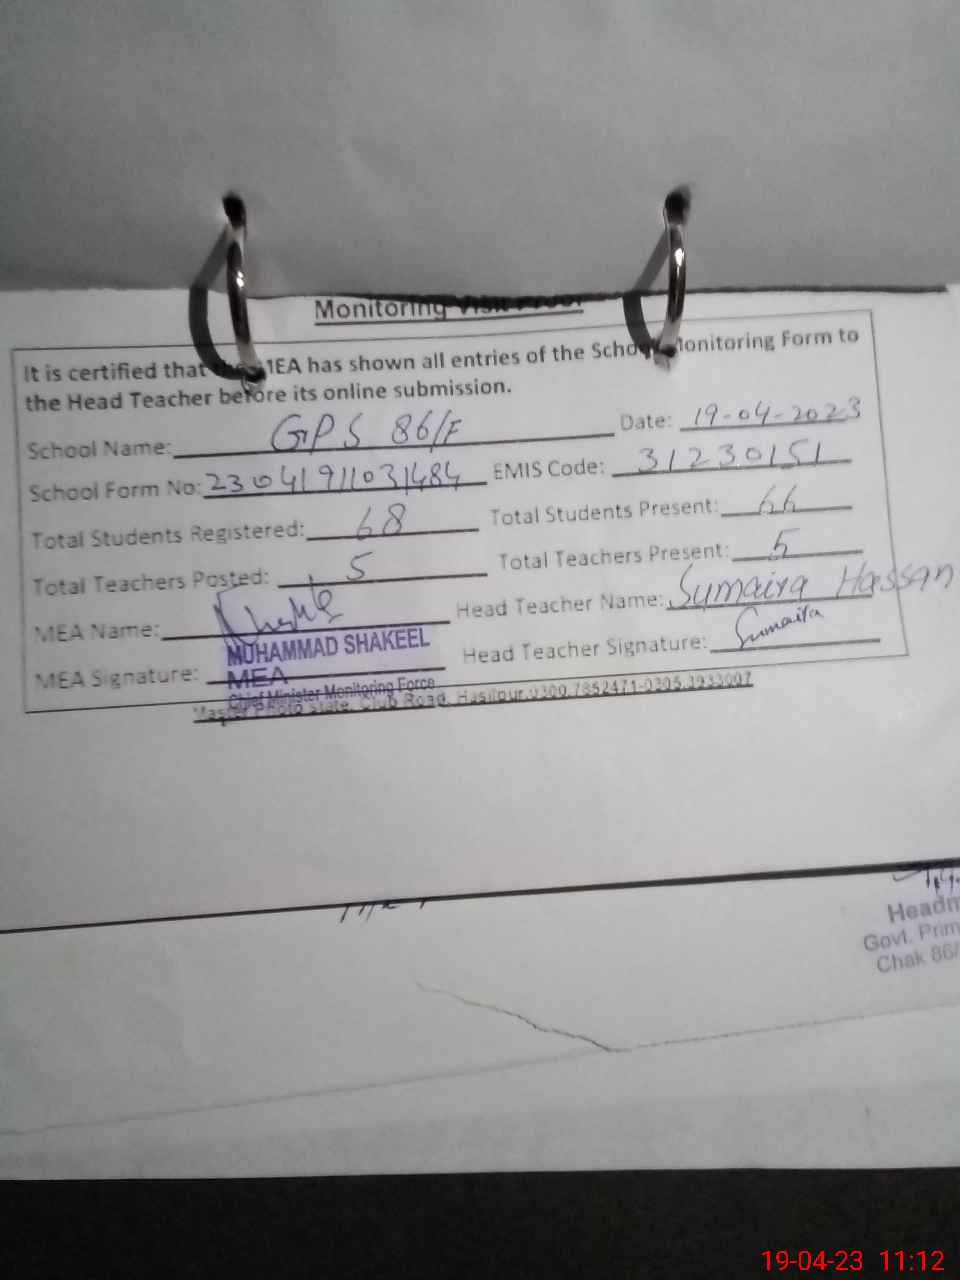 Monitoring Visit Proof
It is certified that the MEA has shown all entries of the School Monitoring Form to
the Head Teacher before its online submission.
School Name: GPS 86/F Date: 19-04-2023
School Form No: 23041911031484 EMIS Code: 31230151
Total Students Registered: 68 Total Students Present: 66
Total Teachers Posted: 5 Total Teachers Present: 5
MEA Name: Head Teacher Name: Sumaira Hassan
MUHAMMAD SHAKEEL
MEA Signature: Head Teacher Signature: Sumaira
MEA
Chief Minister Monitoring Force
Master Photo state, Club Road, Hasilpur 0300.7852471-0305.3933007
Headm
Govt. Prim
Chak 86/
19-04-23 11:12